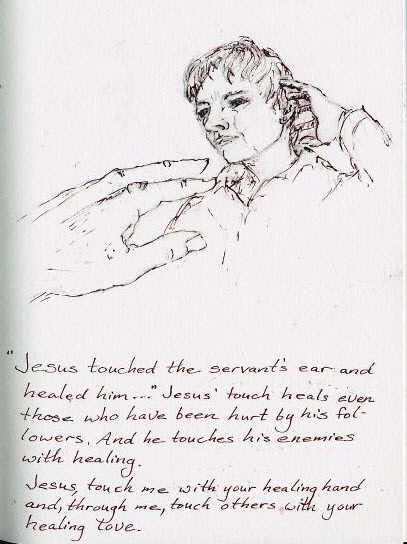 "Jesus touched the servant's ear and
healed him..." Jesus' touch heals even
those who have been hurt by his fol-
lowers. And he touches his enemies
with healing.
Jesus, touch me with your healing hand
and, through me, touch others with your
healing love.